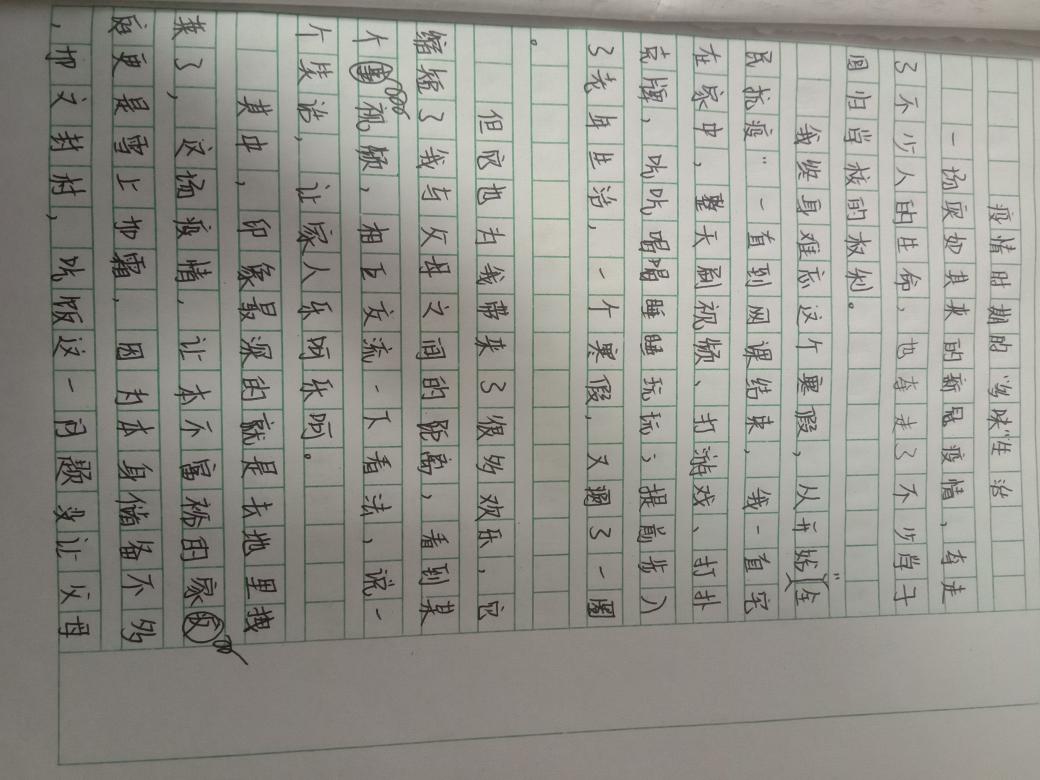 疫情时期的“多味”生活
一场突如其来的新冠疫情，夺走
了不少人的生命，也夺走了不少学子
回归学校的权利。
我终身难忘这个寒假，从开始“全
民抗疫”一直到网课结束，我一直宅
在家中，整天刷视频、打游戏、打扑
克牌，吃吃喝喝睡睡玩玩；提前步入
了老年生活，一个寒假，又圆了一圈
。
但它也为我带来了很多欢乐，它
缩短了我与父母之间的距离，看到某
个视频，相互交流一下看法，说一
个笑话，让家人乐呵乐呵。
其中，印象最深的就是去地里拽
菜了，这场疫情，让本不富裕的家
庭更是雪上加霜，因为本身储备不多
，加文封村，吃饭这一问题变让父母